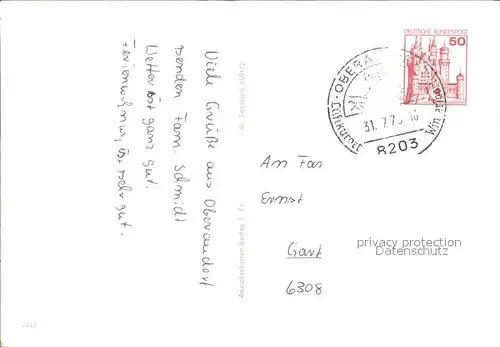 Viele Grüße aus Oberaudorf
senden Fam. Schmidt
Wetter ist ganz gut.
Ferienwohnung ist sehr gut.
DEUTSCHE BUNDESPOST
50
Luftkurort
31. 7.7
8203
An Fam
Ernst
6308
privacy protection
Datenschutz
Ansichtskarten-Verlag